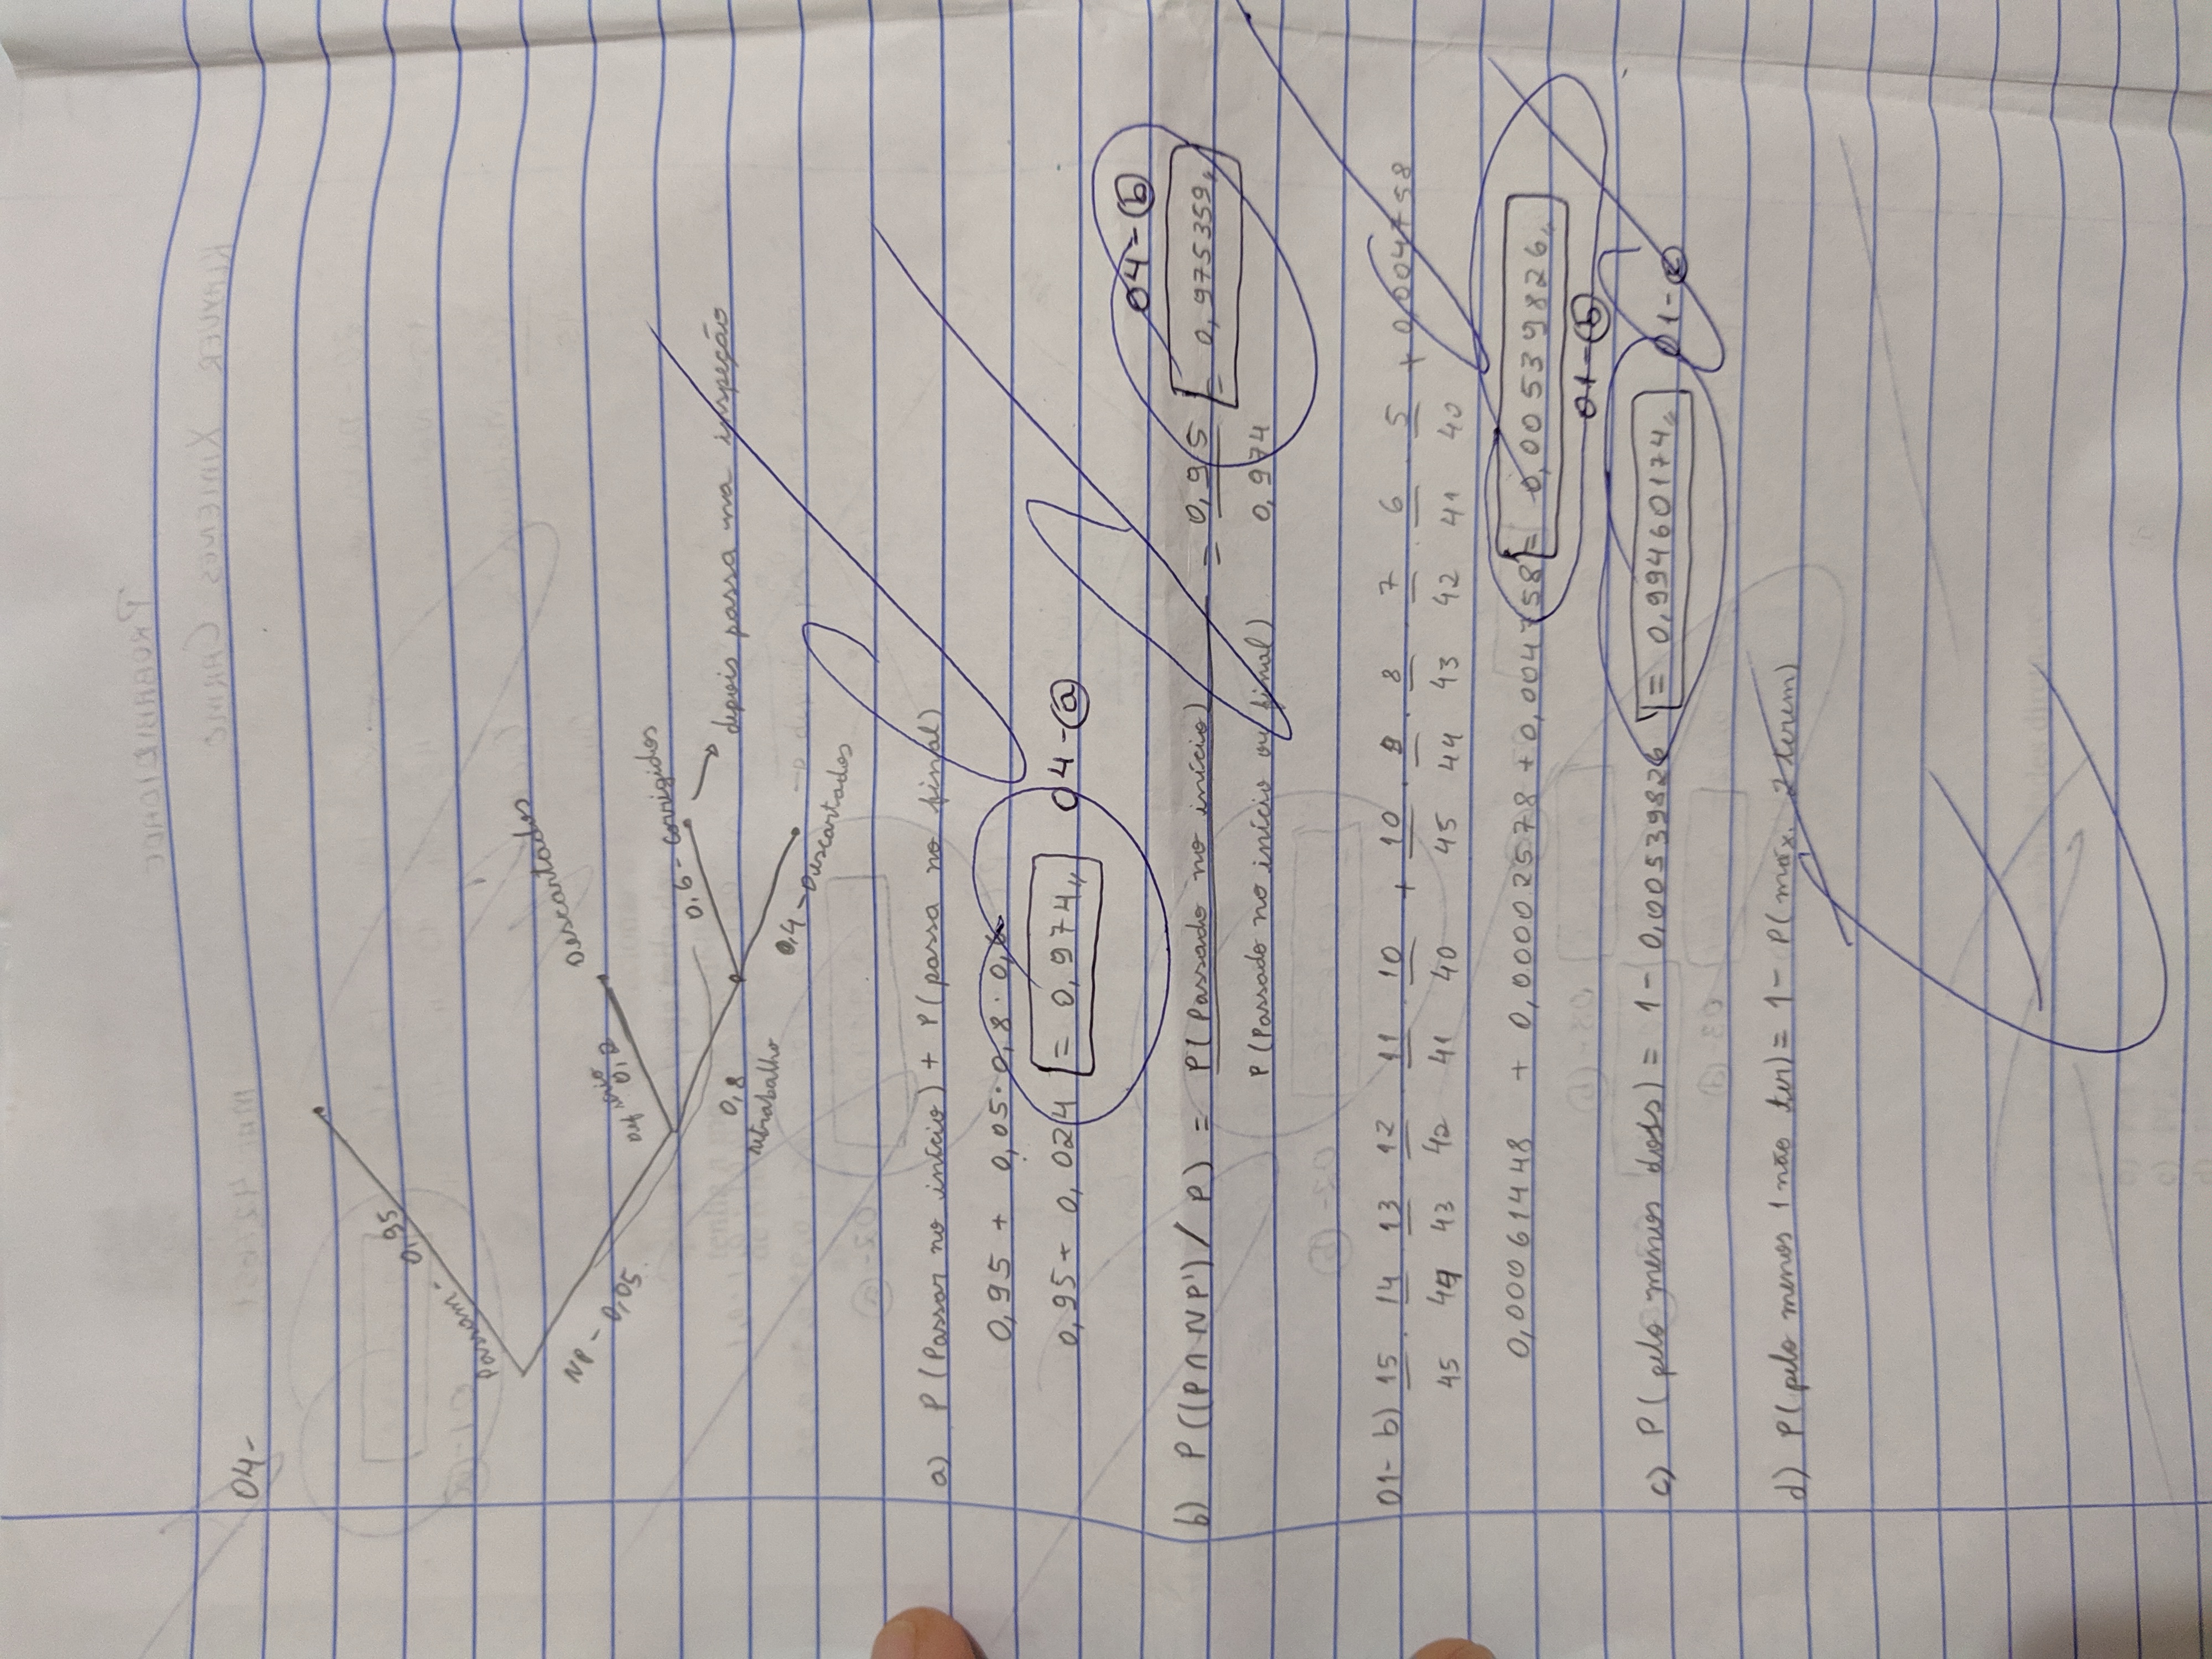 04-
Passam - 0,95
NP - 0,05
Def sério
0,2
Descartados
0,8
retrabalho
0,6 - Corrigidos
depois passa na inspeção
0,4 - Descartados
a) P (Passar no início) + P (passa no final)
0,95 + 0,05 · 0,8 · 0,6
0,95 + 0,024 = 0,974,, 04-a
04-b
b) P((P∩NP')/P) = P(Passado no início) / P(Passado no início ou final) = 0,95 / 0,974 = 0,975359,,
01- b) 15/45 · 14/44 · 13/43 · 12/42 · 11/41 · 10/40 + 10/45 · 9/44 · 8/43 · 7/42 · 6/41 · 5/40 + 0,004758
0,00061448 + 0,00002578 + 0,004758 = 0,00539826,,
01-b
c) P(pelo menos dois) = 1 - 0,00539826 = 0,99460174,, 01-c
d) P(pelo menos 1 não ter) = 1 - P(máx. 2 terem)